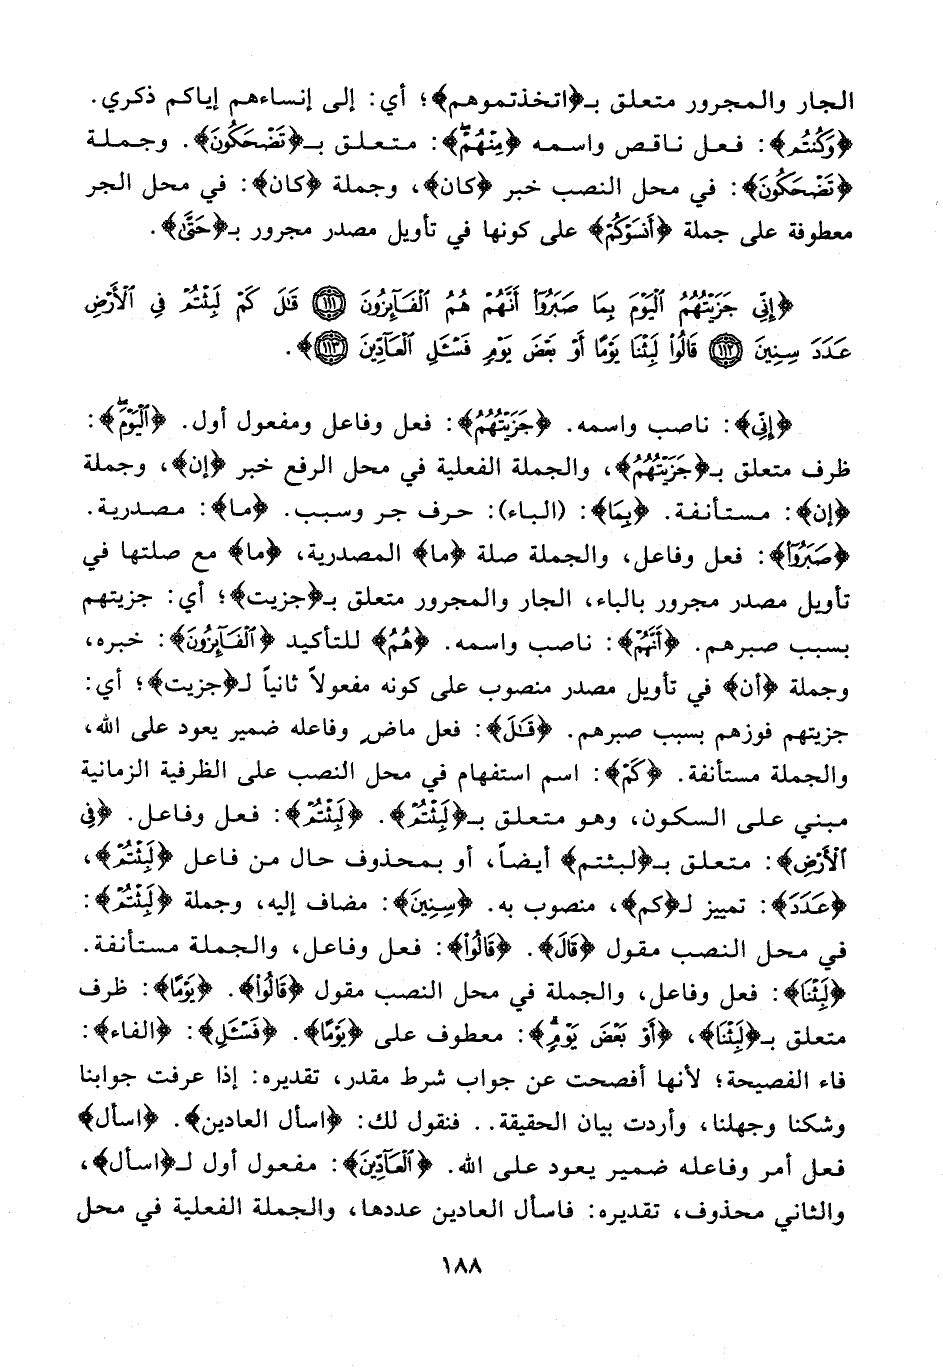 الجار والمجرور متعلق بـ﴿اتخذتموهم﴾؛ أي: إلى إنساءهم إياكم ذكري.
﴿وَكُنتُم﴾: فعل ناقص واسمه ﴿مِّنْهُمْ﴾: متعلق بـ﴿تَضْحَكُونَ﴾. وجملة
﴿تَضْحَكُونَ﴾: في محل النصب خبر ﴿كان﴾، وجملة ﴿كان﴾: في محل الجر
معطوفة على جملة ﴿أَنسَوْكُمْ﴾ على كونها في تأويل مصدر مجرور بـ﴿حَتَّىٰ﴾.
﴿إِنِّي جَزَيْتُهُمُ ٱلْيَوْمَ بِمَا صَبَرُوٓا۟ أَنَّهُمْ هُمُ ٱلْفَآئِزُونَ ﴿١١١﴾ قَٰلَ كَمْ لَبِثْتُمْ فِي ٱلْأَرْضِ
عَدَدَ سِنِينَ ﴿١١٢﴾ قَالُوا۟ لَبِثْنَا يَوْمًا أَوْ بَعْضَ يَوْمٍ فَسْـَٔلِ ٱلْعَآدِّينَ ﴿١١٣﴾﴾.
﴿إِنِّي﴾: ناصب واسمه. ﴿جَزَيْتُهُمُ﴾: فعل وفاعل ومفعول أول. ﴿ٱلْيَوْمَ﴾:
ظرف متعلق بـ﴿جَزَيْتُهُمُ﴾، والجملة الفعلية في محل الرفع خبر ﴿إن﴾، وجملة
﴿إن﴾: مستأنفة. ﴿بِمَا﴾: (الباء): حرف جر وسبب. ﴿ما﴾: مصدرية.
﴿صَبَرُوٓا۟﴾: فعل وفاعل، والجملة صلة ﴿ما﴾ المصدرية، ﴿ما﴾ مع صلتها في
تأويل مصدر مجرور بالباء، الجار والمجرور متعلق بـ﴿جزيت﴾؛ أي: جزيتهم
بسبب صبرهم. ﴿أَنَّهُمْ﴾: ناصب واسمه. ﴿هُمُ﴾ للتأكيد ﴿ٱلْفَآئِزُونَ﴾: خبره،
وجملة ﴿أن﴾ في تأويل مصدر منصوب على كونه مفعولاً ثانياً لـ﴿جزيت﴾؛ أي:
جزيتهم فوزهم بسبب صبرهم. ﴿قَٰلَ﴾: فعل ماض وفاعله ضمير يعود على الله،
والجملة مستأنفة. ﴿كَمْ﴾: اسم استفهام في محل النصب على الظرفية الزمانية
مبني على السكون، وهو متعلق بـ﴿لَبِثْتُمْ﴾. ﴿لَبِثْتُمْ﴾: فعل وفاعل. ﴿فِي
ٱلْأَرْضِ﴾: متعلق بـ﴿لبثتم﴾ أيضاً، أو بمحذوف حال من فاعل ﴿لَبِثْتُمْ﴾،
﴿عَدَدَ﴾: تمييز لـ﴿كم﴾، منصوب به. ﴿سِنِينَ﴾: مضاف إليه، وجملة ﴿لَبِثْتُمْ﴾:
في محل النصب مقول ﴿قَالَ﴾. ﴿قَالُوا۟﴾: فعل وفاعل، والجملة مستأنفة.
﴿لَبِثْنَا﴾: فعل وفاعل، والجملة في محل النصب مقول ﴿قَالُوا۟﴾. ﴿يَوْمًا﴾: ظرف
متعلق بـ﴿لَبِثْنَا﴾، ﴿أَوْ بَعْضَ يَوْمٍ﴾: معطوف على ﴿يَوْمًا﴾. ﴿فَسْـَٔلِ﴾: ﴿الفاء﴾:
فاء الفصيحة؛ لأنها أفصحت عن جواب شرط مقدر، تقديره: إذا عرفت جوابنا
وشكنا وجهلنا، وأردت بيان الحقيقة.. فنقول لك: ﴿اسأل العادين﴾. ﴿اسأل﴾
فعل أمر وفاعله ضمير يعود على الله. ﴿ٱلْعَآدِّينَ﴾: مفعول أول لـ﴿اسأل﴾،
والثاني محذوف، تقديره: فاسأل العادين عددها، والجملة الفعلية في محل
١٨٨